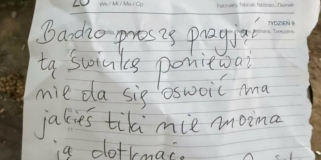 Wś / Mi / Me / Cp
TYDZIEŃ 9
Bardzo proszę przyjąć
tą świnkę ponieważ
nie da się oswoić ma
jakieś tiki nie można
ją dotknąć